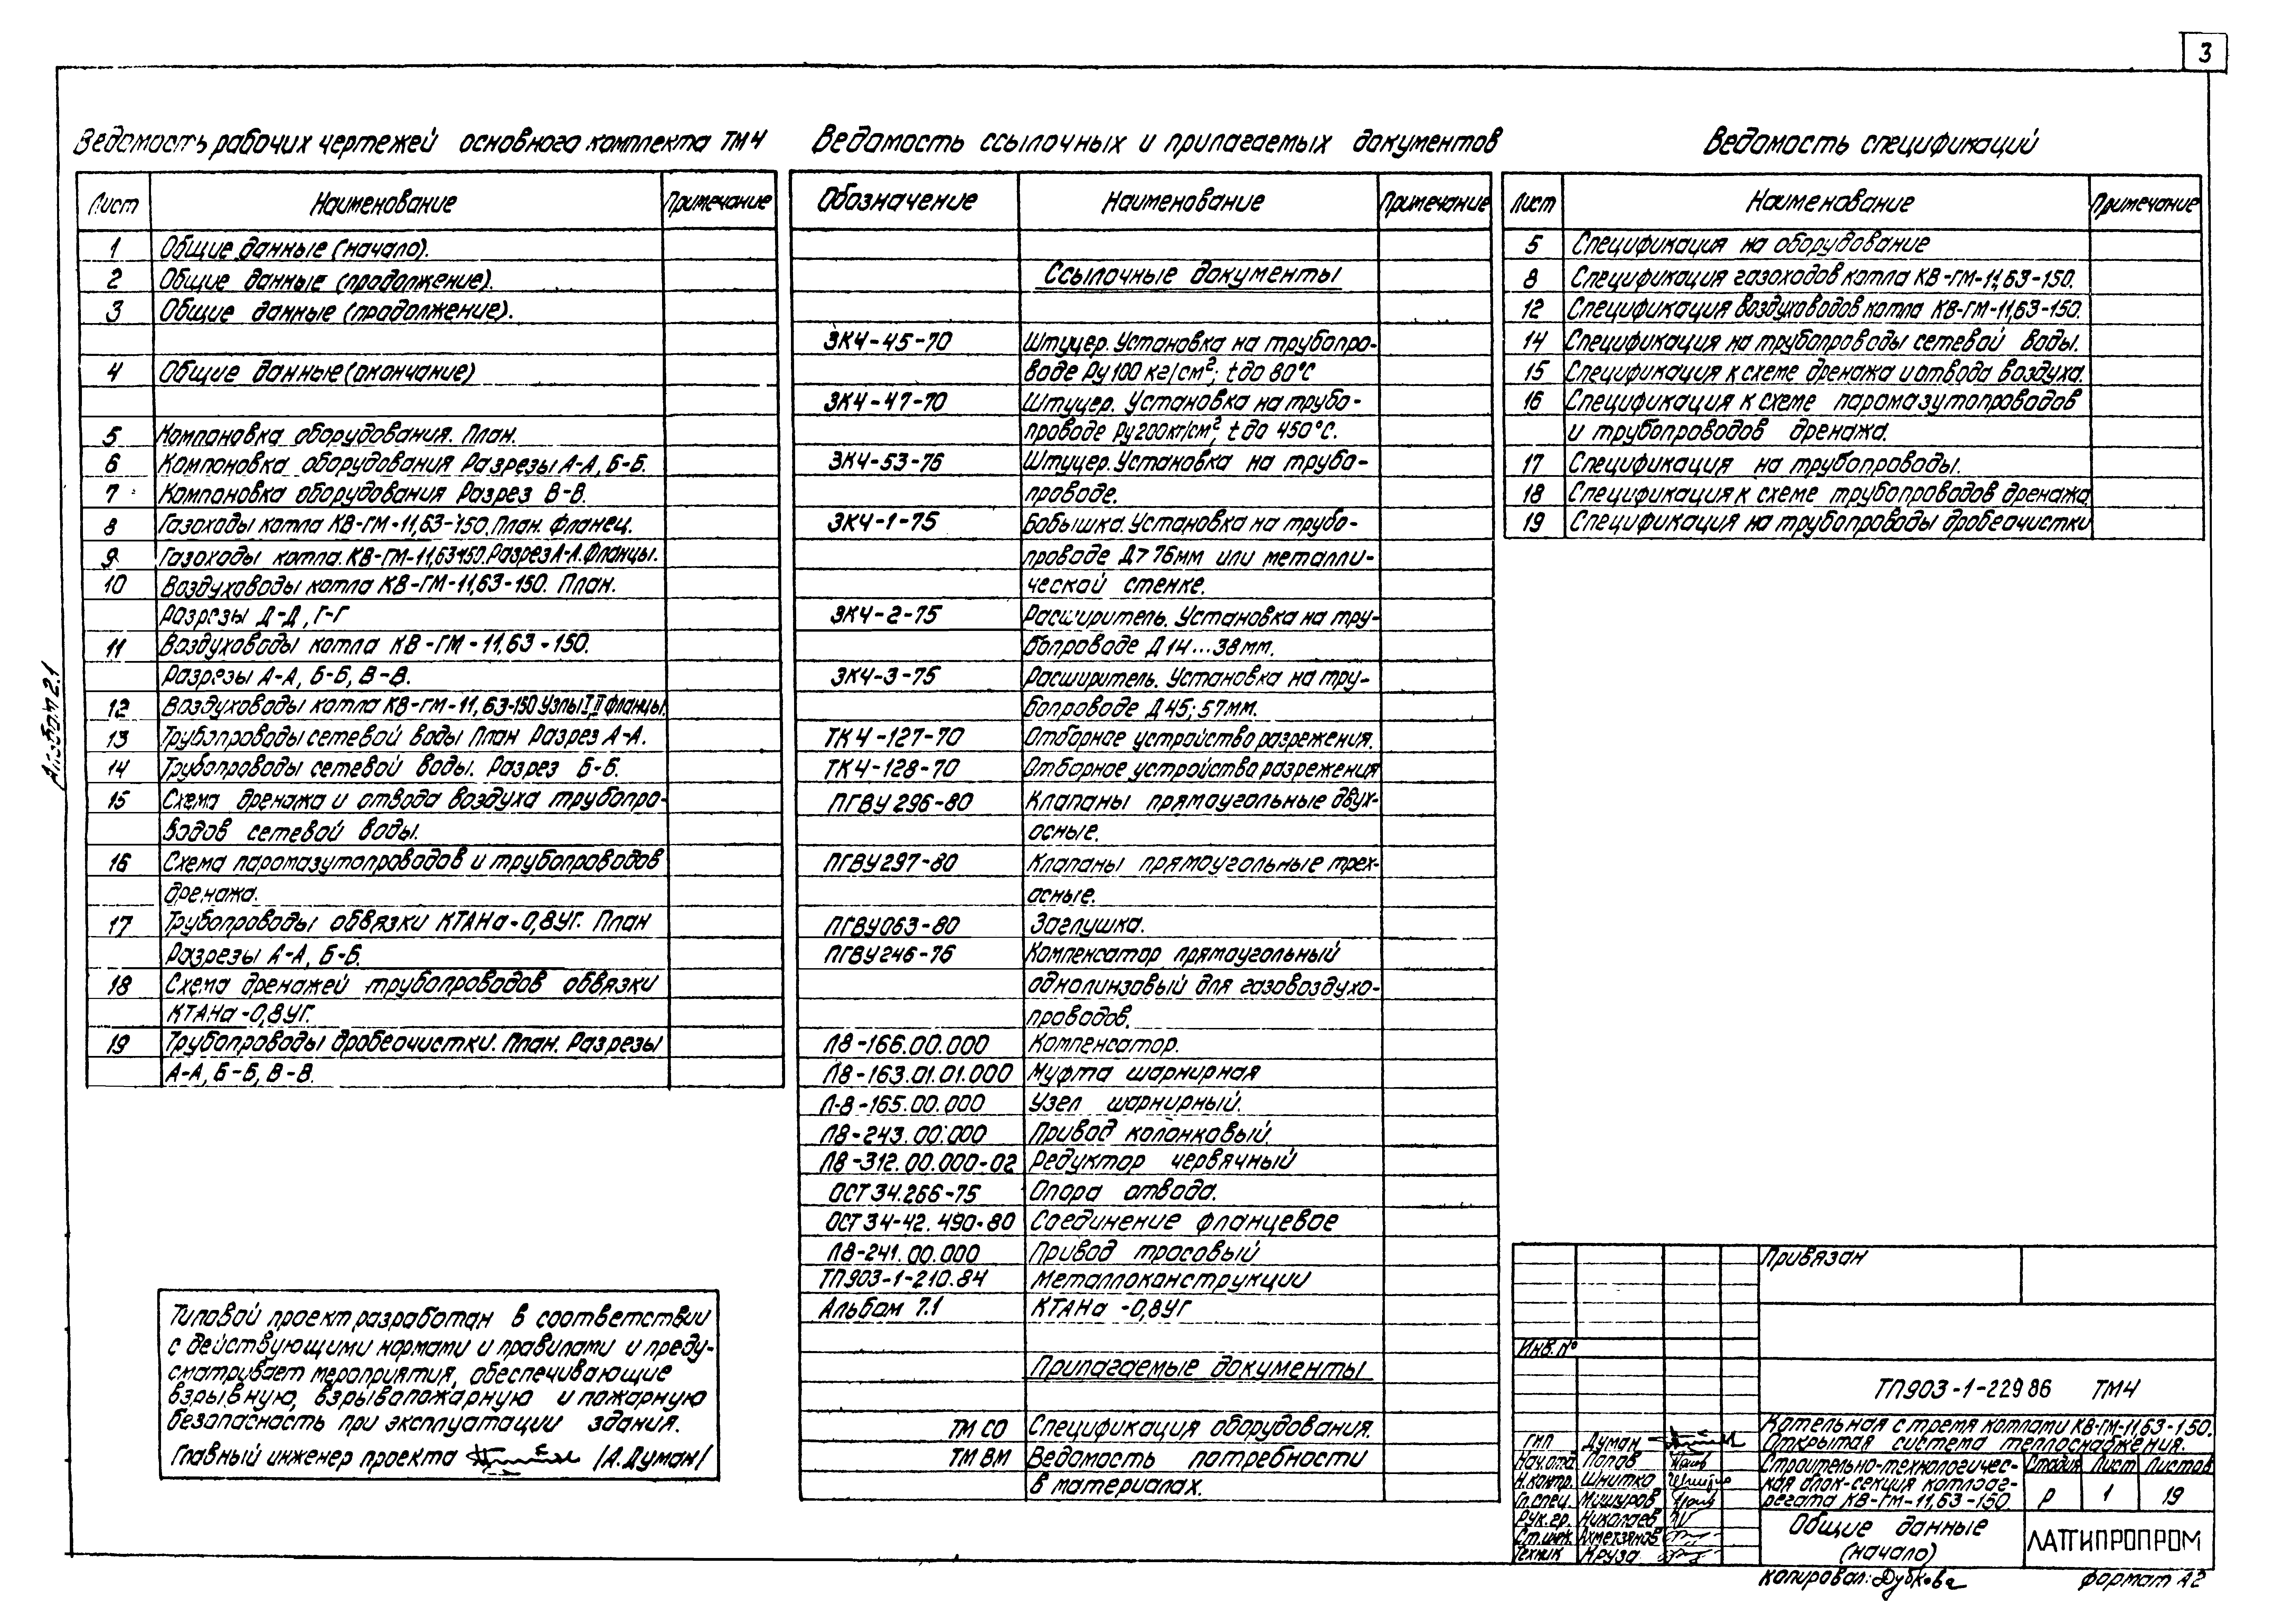 3
Ведомость рабочих чертежей основного комплекта ТМ4
Лист Наименование Примечание
1 Общие данные (начало).
2 Общие данные (продолжение).
3 Общие данные (продолжение).
4 Общие данные (окончание)
5 Компановка оборудования. План.
6 Компоновка оборудования Разрезы А-А, Б-Б.
7 Компановка оборудования Разрез В-В.
8 Газоходы котла КВ-ГМ-11,63-150. План. Фланец.
9 Газоходы котла. КВ-ГМ-11,63-150. Разрез А-А. Фланцы.
10 Воздуховоды котла КВ-ГМ-11,63-150. План.
Разрезы Д-Д, Г-Г
11 Воздуховоды котла КВ-ГМ-11,63-150.
Разрезы А-А, Б-Б, В-В.
12 Воздуховоды котла КВ-ГМ-11,63-150 Узлы I, II Фланцы.
13 Трубопроводы сетевой воды План Разрез А-А.
14 Трубопроводы сетевой воды. Разрез Б-Б.
15 Схема дренажа и отвода воздуха трубопро-
водов сетевой воды.
16 Схема паромазутопроводов и трубопроводов
дренажа.
17 Трубопроводы обвязки КТАНа-0,8УГ. План
Разрезы А-А, Б-Б.
18 Схема дренажей трубопроводов обвязки
КТАНа-0,8УГ.
19 Трубопроводы дробеочистки. План. Разрезы
А-А, Б-Б, В-В.
Альбом 2.1
Типовой проект разработан в соответствии
с действующими нормами и правилами и преду-
сматривает мероприятия, обеспечивающие
взрывную, взрывопожарную и пожарную
безопасность при эксплуатации здания.
Главный инженер проекта /А. Думан/
Ведомость ссылочных и прилагаемых документов
Обозначение Наименование Примечание
Ссылочные документы
ЗК4-45-70 Штуцер. Установка на трубопро-
воде Ру100 кг/см²; t до 80°С
ЗК4-47-70 Штуцер. Установка на трубо-
проводе Ру200кг/см², t до 450°С.
ЗК4-53-76 Штуцер. Установка на трубо-
проводе.
ЗК4-1-75 Бобышка. Установка на трубо-
проводе Д>76мм или металли-
ческой стенке.
ЗК4-2-75 Расширитель. Установка на тру-
бопроводе Д14...38мм.
ЗК4-3-75 Расширитель. Установка на тру-
бопроводе Д45; 57мм.
ТК4-127-70 Отборное устройство разрежения.
ТК4-128-70 Отборное устройство разрежения
ПГВУ 296-80 Клапаны прямоугольные двух-
осные.
ПГВУ297-80 Клапаны прямоугольные трех-
осные.
ПГВУ063-80 Заглушка.
ПГВУ246-76 Компенсатор прямоугольный
однолинзовый для газовоздухо-
проводов.
Л8-166.00.000 Компенсатор.
Л8-163.01.01.000 Муфта шарнирная
Л-8-165.00.000 Узел шарнирный.
Л8-243.00.000 Привод колонковый.
Л8-312.00.000-02 Редуктор червячный
ОСТ34.266-75 Опора отвода.
ОСТ34-42.490-80 Соединение фланцевое
Л8-241.00.000 Привод тросовый
ТП903-1-210.84 Металлоконструкции
Альбом 7.1 КТАНа-0,8УГ
Прилагаемые документы
ТМ СО Спецификация оборудования.
ТМ ВМ Ведомость потребности
в материалах.
Ведомость спецификаций
Лист Наименование Примечание
5 Спецификация на оборудование
8 Спецификация газоходов котла КВ-ГМ-11,63-150.
12 Спецификация воздуховодов котла КВ-ГМ-11,63-150.
14 Спецификация на трубопроводы сетевой воды.
15 Спецификация к схеме дренажа и отвода воздуха.
16 Спецификация к схеме паромазутопроводов
и трубопроводов дренажа.
17 Спецификация на трубопроводы.
18 Спецификация к схеме трубопроводов дренажа
19 Спецификация на трубопроводы дробеочистки
Привязан
Инв. №
ТП903-1-229 86 ТМ4
Котельная с тремя котлами КВ-ГМ-11,63-150.
Открытая система теплоснабжения.
ГИП Думан
Нач.отд. Попов
Н.контр. Шнитко
Гл.спец. Мишуров
Рук.гр. Николаев
Ст.инж. Ахметзянов
Техник Круза
Строительно-технологичес-
кая блок-секция котлоаг-
регата КВ-ГМ-11,63-150.
Стадия Лист Листов
Р 1 19
Общие данные
(начало)
ЛАТГИПРОПРОМ
Копировал: Дубкова
Формат А2